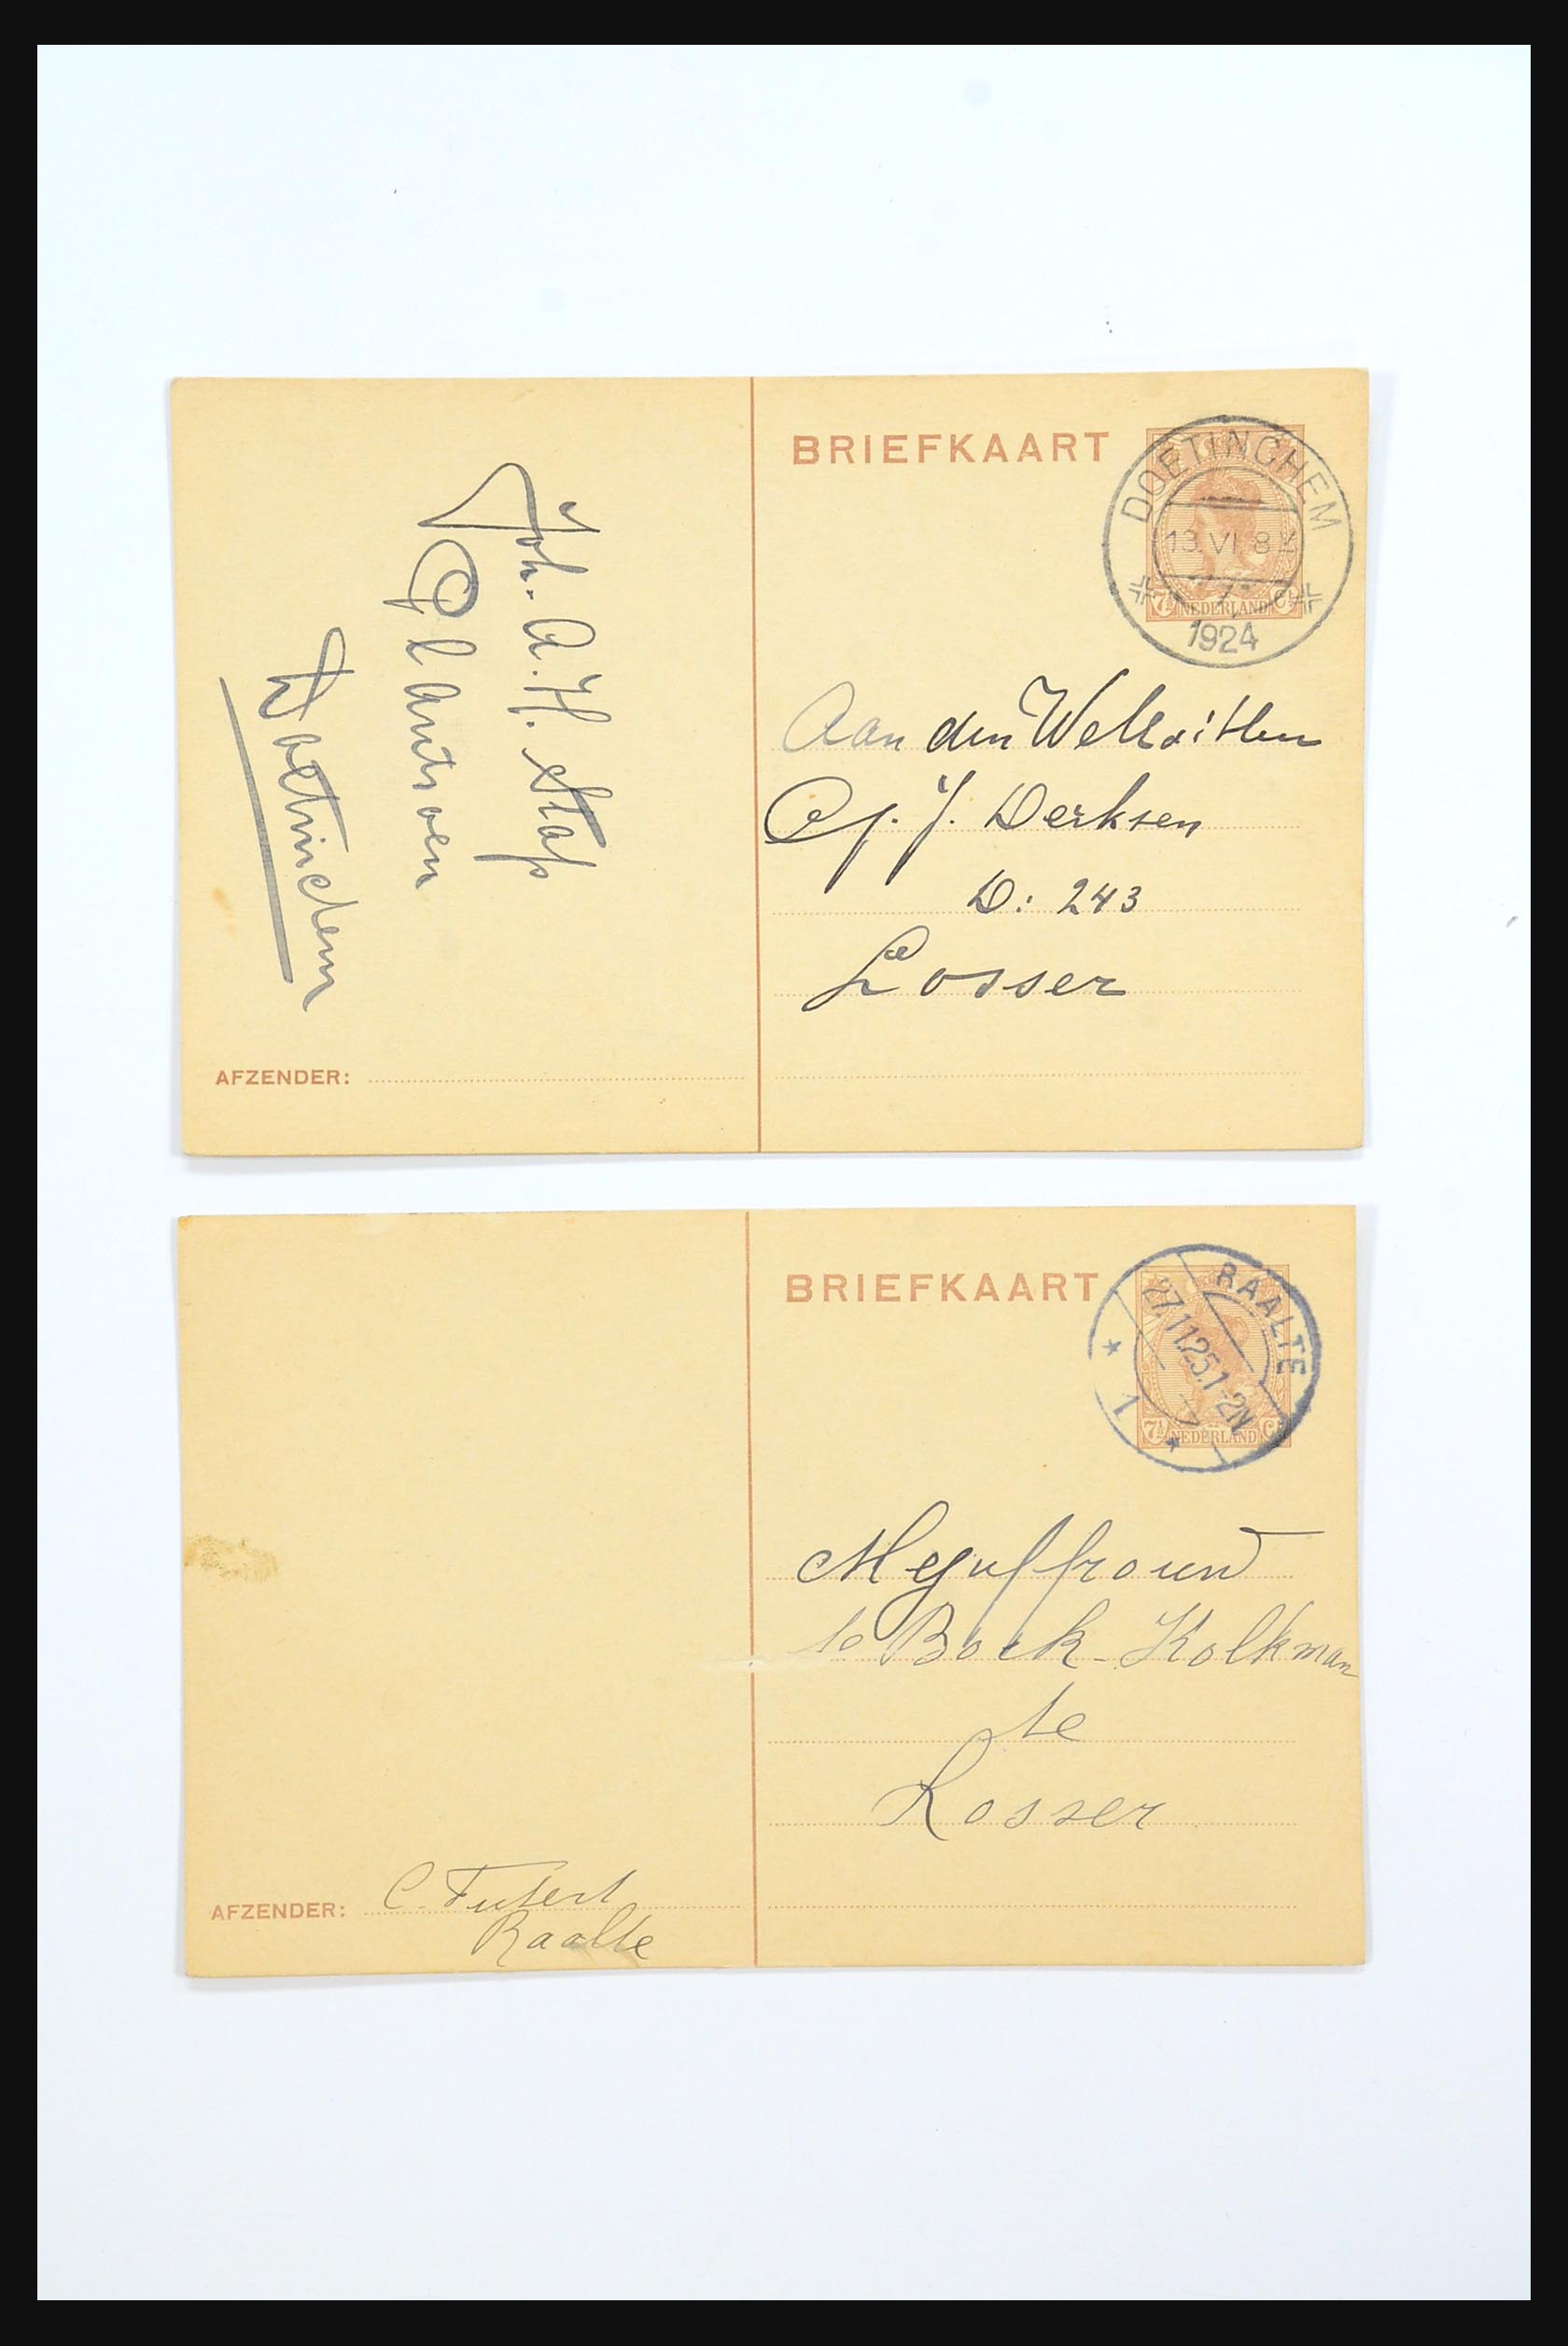 BRIEFKAART
DOETINCHEM
13.VI 8
1924
7½ NEDERLAND Ct
Joh. A. H. Stap
Doetinchem
Aan den
J. Derksen
D: 243
Losser
AFZENDER:
BRIEFKAART
RAALTE
27.11.25.1-2N
1
7½ NEDERLAND Ct
Mejuffrouw
te Bock-Kolkman
te
Losser
AFZENDER: C.
Raalte